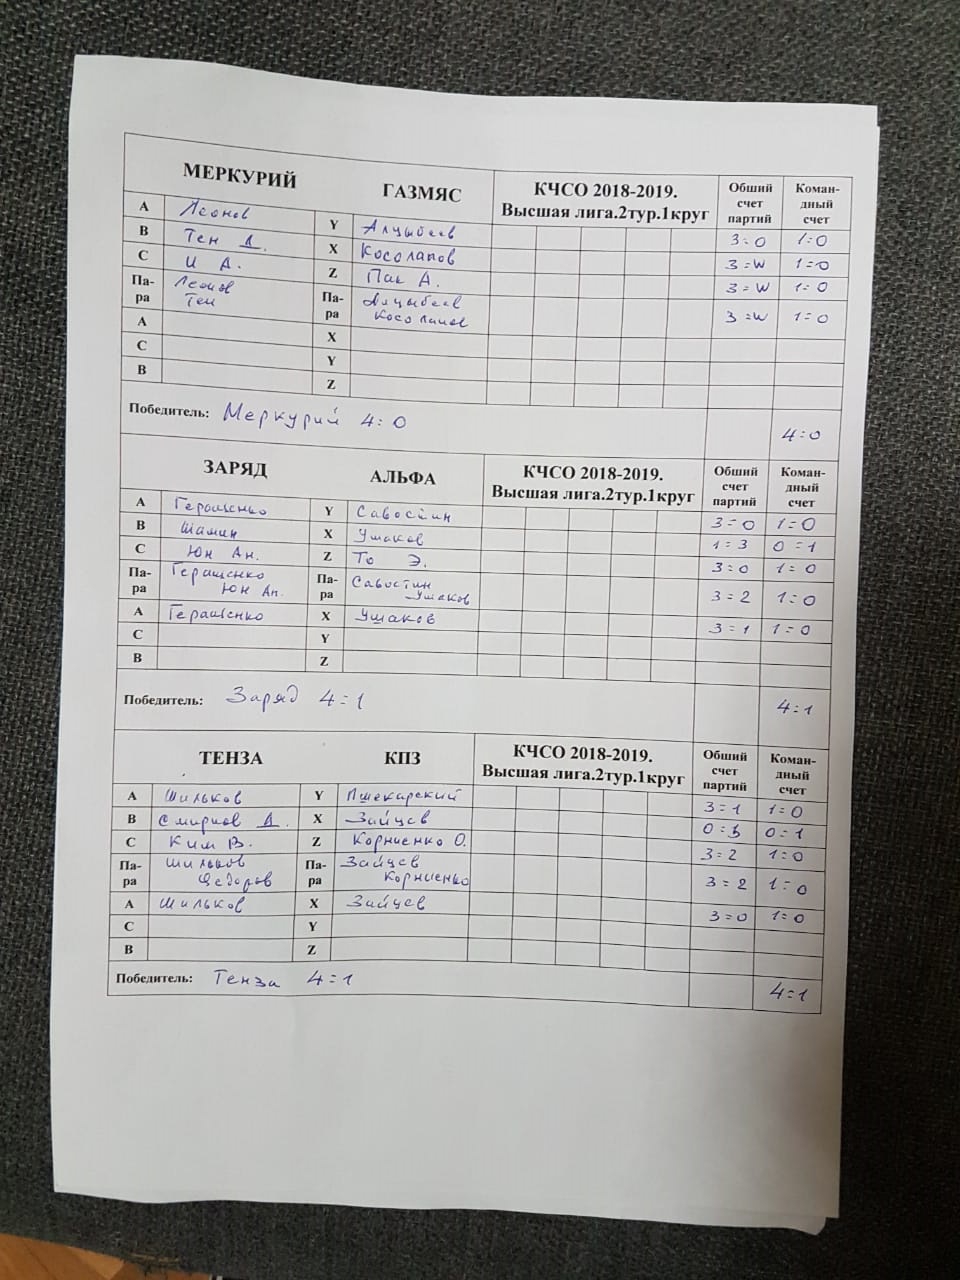 МЕРКУРИЙ ГАЗМЯС КЧСО 2018-2019. Высшая лига.2тур.1круг Обший счет партий Коман-дный счет
А Леонов Y Алцыбеев 3=0 1=0
В Тен Д. X Косолапов 3=W 1=0
С И А. Z Пак А. 3=W 1=0
Па-ра Леонов Тен Па-ра Алцыбеев Косолапов 3=W 1=0
А X
С Y
В Z
Победитель: Меркурий 4:0 4=0
ЗАРЯД АЛЬФА КЧСО 2018-2019. Высшая лига.2тур.1круг Обший счет партий Коман-дный счет
А Геращенко Y Савостин 3=0 1=0
В Шамин X Ушаков 1=3 0=1
С Юн Ан. Z То Э. 3=0 1=0
Па-ра Геращенко Юн Ан. Па-ра Савостин Ушаков 3=2 1=0
А Геращенко X Ушаков 3=1 1=0
С Y
В Z
Победитель: Заряд 4=1 4=1
ТЕНЗА КПЗ КЧСО 2018-2019. Высшая лига.2тур.1круг Обший счет партий Коман-дный счет
А Шильков Y Пшекарский 3=1 1=0
В Смирнов Д. X Зайцев 0=3 0=1
С Ким В. Z Корниенко О. 3=2 1=0
Па-ра Шильков Федоров Па-ра Зайцев Корниенко 3=2 1=0
А Шильков X Зайцев 3=0 1=0
С Y
В Z
Победитель: Тенза 4=1 4=1